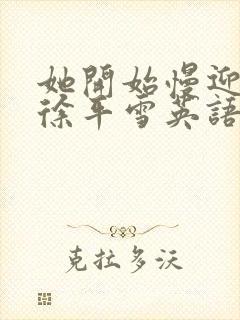 她開始慢迎
徐平雪英語
克拉多沃